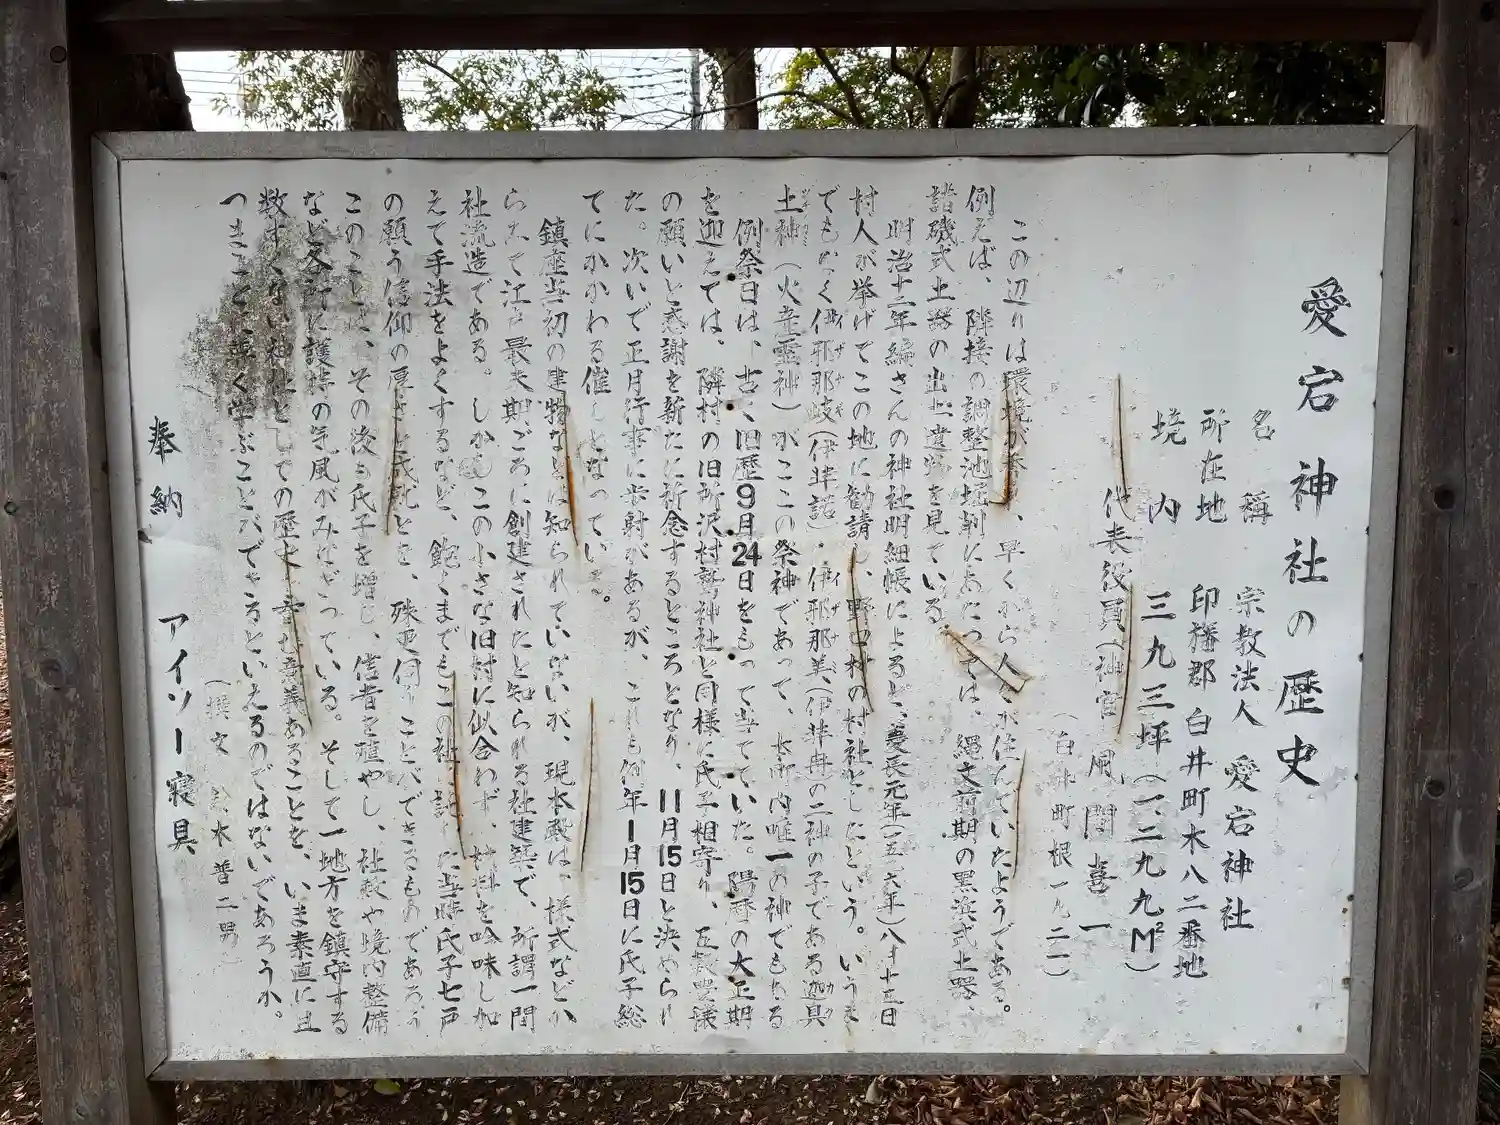 愛宕神社の歴史
名稱 宗教法人 愛宕神社
所在地 印旛郡白井町木八二番地
境内 三九三坪(一、二九九M²)
代表役員(神官) 岡間喜一
(白井町根一九二一)
この辺りは環境が、早くから人が住んでいたようである。
例えば、隣接の調整池堀削にあたっては、縄文前期の黒浜式土器、
諸磯式土器の出土遺物を見ている。
明治十二年編さんの神社明細帳によると、慶長元年(一五九六年)八月十五日
村人が挙げてこの地に勧請し、野口村の村社としたという。いうま
でもなく伊邪那岐(伊弉諾)・伊邪那美(伊弉冉)の二神の子である迦具
土神(火産霊神)がここの祭神であって、町内唯一の神でもある
例祭日は、古く旧暦9月24日をもって当てていた。陽暦の大正期
を迎えては、隣村の旧所沢村鷲神社と同様に氏子相守り、五穀豊穣
の願いと感謝を新たに祈念するところとなり、11月15日と決められ
た。次いで正月行事に歩射があるが、これも例年1月15日に氏子総
てにかかわる催しとなっている。
鎮座当初の建物などは知られていないが、現本殿は、様式などか
らみて江戸最末期ごろに創建されたと知られる社建築で、所謂一間
社流造である。しかもこの小さな旧村に似合わず、材料を吟味し加
えて手法をよくするなど、飽くまでもこの社を託した当時氏子七戸
の願う信仰の厚さと氏氣とを、殊更伺うことができるものであろう
このことは、その後も氏子を増し、信者を殖やし、社殿や境内整備
など各所に護持の気風がみなぎっている。そして一地方を鎮守する
数すくない神社としての歴史、
いま素直に且
つまことに深く学ぶことができるといえるのではないであろうか。
(撰文 水普二男)
奉納 アイソー寝具